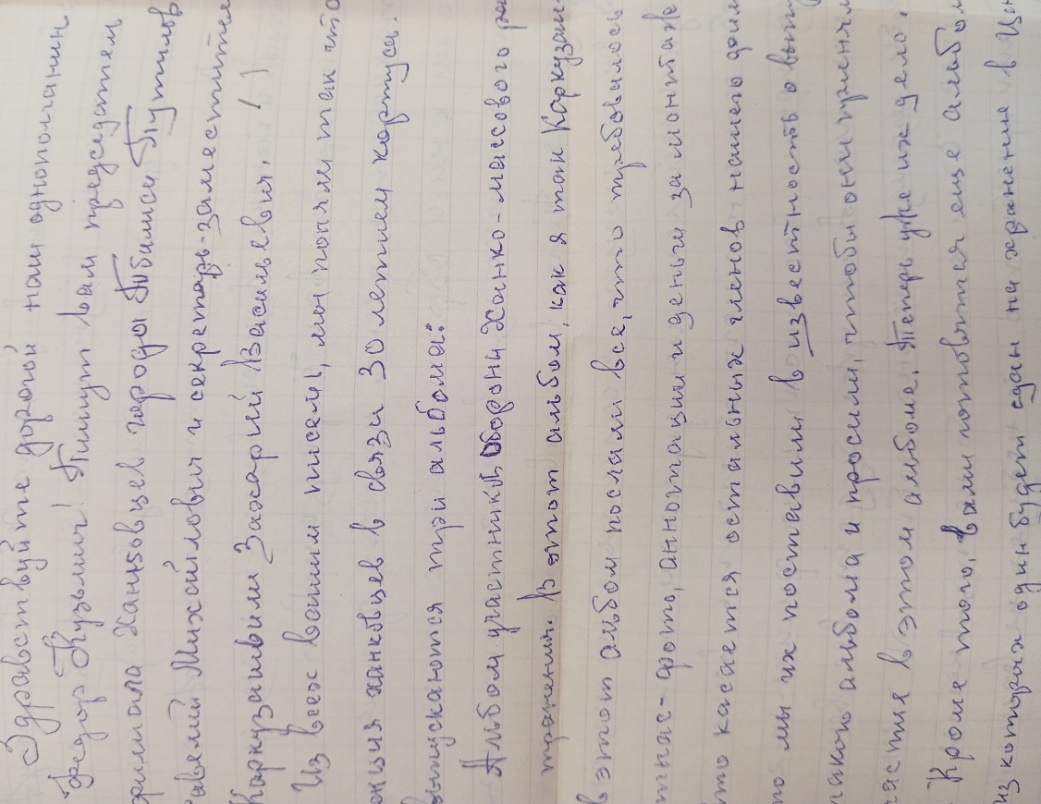 Здравствуйте дорогой наш однополчанин
Федор Кузьмич! Пишут вам председатель
филиала Ханковцев города Тбилиси Путилов
Савелий Михайлович и секретарь-заместитель
Каркузашвили Захарий Васильевич.
Из всех ваших писем, мы поняли так что
секция ханковцев в связи 30 летием корпуса.
выпускаются три альбома:
Альбом участников Обороны Ханко-массового
В этот альбом, как я так Каркузаш
в этот альбом послали все, что требовалось
от нас-фото, аннотации и деньги за монтаже
что касается остальных членов нашего
то мы их поставили в известность о вып
такого альбома и просили, чтобы они приня
частие в этом альбоме. Теперь уже их дело.
Кроме того, вами готовится еще альбом
из которых один будет сдан на хранение в Цен